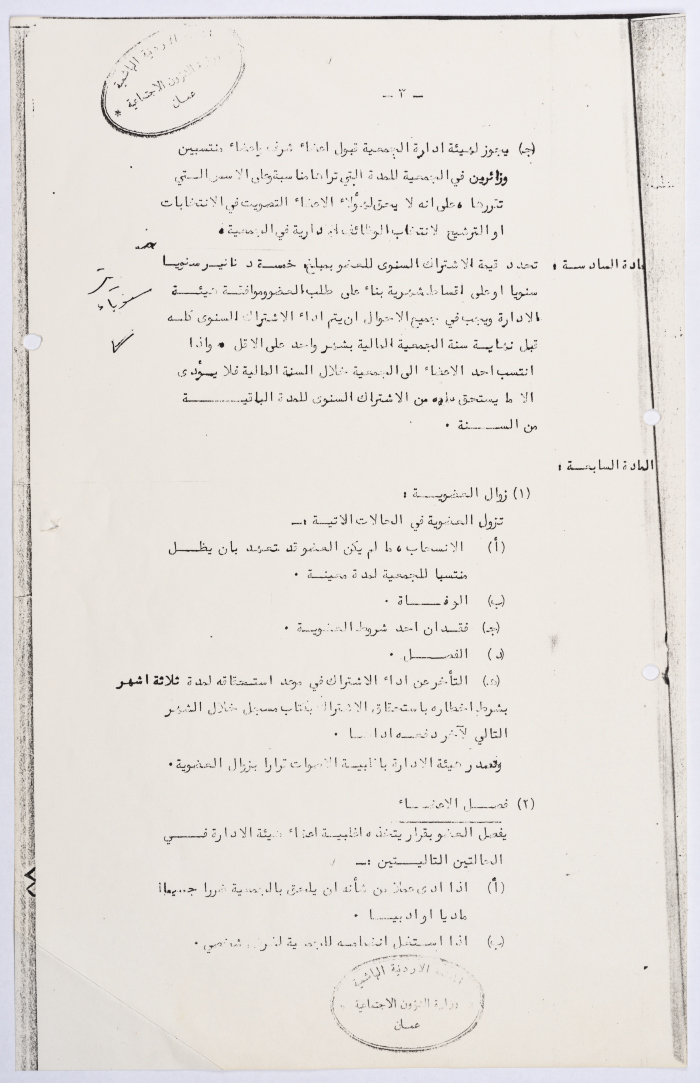 الاردنية الهاشمية
وزارة الشؤون الاجتماعية
عمان
- ٣ -
(ج) يجوز لهيئة ادارة الجمعية قبول اعضاء شرف واعضاء منتسبين
وزائرين في الجمعية للمدة التي تراها مناسبة وعلى الاسس التي
تقررها ، على انه لا يحق لهؤلاء الاعضاء التصويت في الانتخابات
او الترشيح لانتخاب الوظائف الادارية في الجمعية ،
مادة السادسة : تحدد قيمة الاشتراك السنوى للعضو بمبلغ خمسة دنانير سنويا
سنويا او على اقساط شهرية بناء على طلب العضو وموافقة هيئة
الادارة ويجب في جميع الاحوال ان يتم اداء الاشتراك السنوى كله
قبل نهاية سنة الجمعية المالية بشهر واحد على الاقل . واذا
انتسب احد الاعضاء الى الجمعية خلال السنة المالية فلا يؤدى
الا ما يستحق دفعه من الاشتراك السنوى للمدة الباقية
من السنة .
المادة السابعة :
(١) زوال العضوية :
تزول العضوية في الحالات الاتية :-
(أ) الانسحاب ، ما لم يكن العضو قد تعهد بان يظل
منتسبا للجمعية لمدة معينة .
(ب) الوفاة .
(ج) فقدان احد شروط العضوية .
(د) الفصل .
(هـ) التأخر عن اداء الاشتراك في موعد استحقاقه لمدة ثلاثة اشهر
بشرط اخطاره باستحقاق الاشتراك بكتاب مسجل خلال الشهر
التالي لآخر دفعه اداها .
وتصدر هيئة الادارة باغلبية الاصوات قرارا بزوال العضوية .
(٢) فصل الاعضاء
يفصل العضو بقرار يتخذه اغلبية اعضاء هيئة الادارة في
الحالتين التاليتين :-
(أ) اذا ادى عملا من شأنه ان يلحق بالجمعية ضررا جسيما
ماديا او ادبيا .
(ب) اذا استغل انضمامه للجمعية لغرض شخصي .
الاردنية الهاشمية
وزارة الشؤون الاجتماعية
عمان